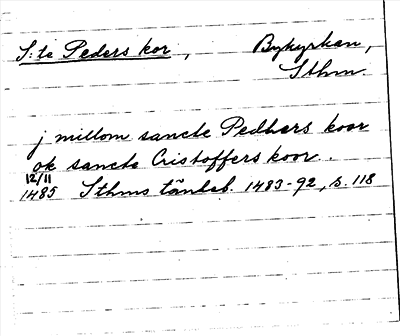 S:te Peders kor, Bykyrkan,
Sthm.
j millom sancte Pedhers koor
ok sancte Cristoffers koor.
12/11
1485 Sthms tänkeb. 1483-92, s. 118